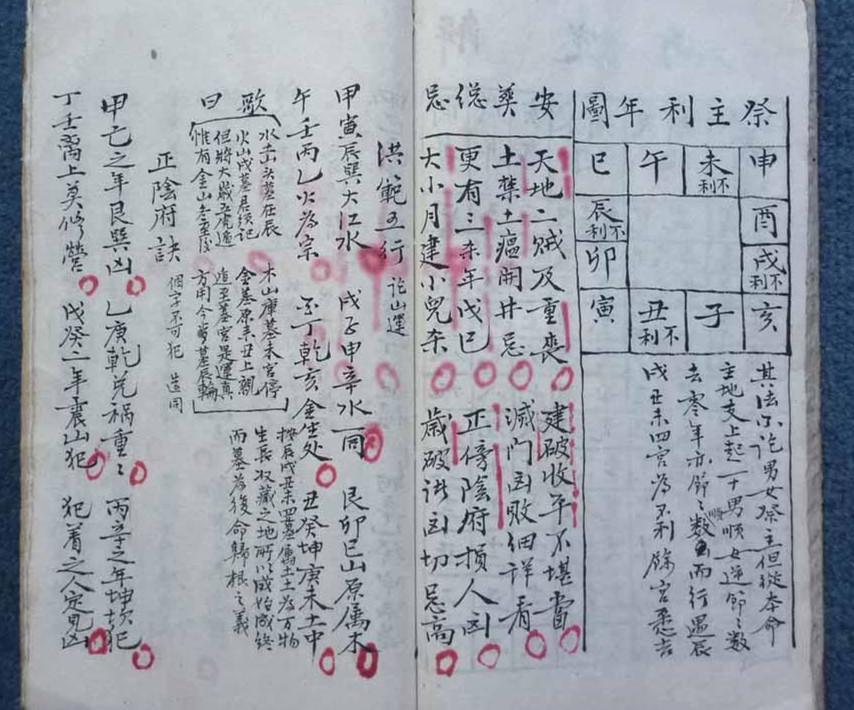 祭主利年圖
申 未不利 午 巳
酉 辰不利
戌不利 卯
亥 子 丑不利 寅
其法不論男女祭主但從本命
主地支上起一十男順女逆節々數
去零年亦節々順數而行遇辰
戌丑未四宮為不利餘宮悉吉
安葬總忌
天地二賊及重喪 建破收平不堪當
土禁土瘟開井忌 滅門凶敗細詳看
更有三杀年戊巳 正傍陰府損人凶
大小月建小兒杀 歲破諸凶切忌高
洪範五行 論山運
甲寅辰巽大江水 戌子申辛水一同 艮卯巳山原属木
午壬丙乙火為宗 丁乾亥金生处 丑癸坤庚未土中
歌曰
水土墓在辰 木山庫墓未宮停
火山戌墓君須記 金墓原來丑上親
但將大歲五虎遁 造至墓宮是運真
惟有金山冬至後 方用今當墓辰輪
按辰戌丑未四墓属土土為万物
生長收藏之地所以成始成終
而墓為復命歸根之義
正陰府訣 個字不可犯 造用
甲己之年艮巽凶 乙庚乾兌禍重々 丙辛之年坤坎犯
丁壬离上莫修營 戊癸二年震山犯 犯着之人定見凶